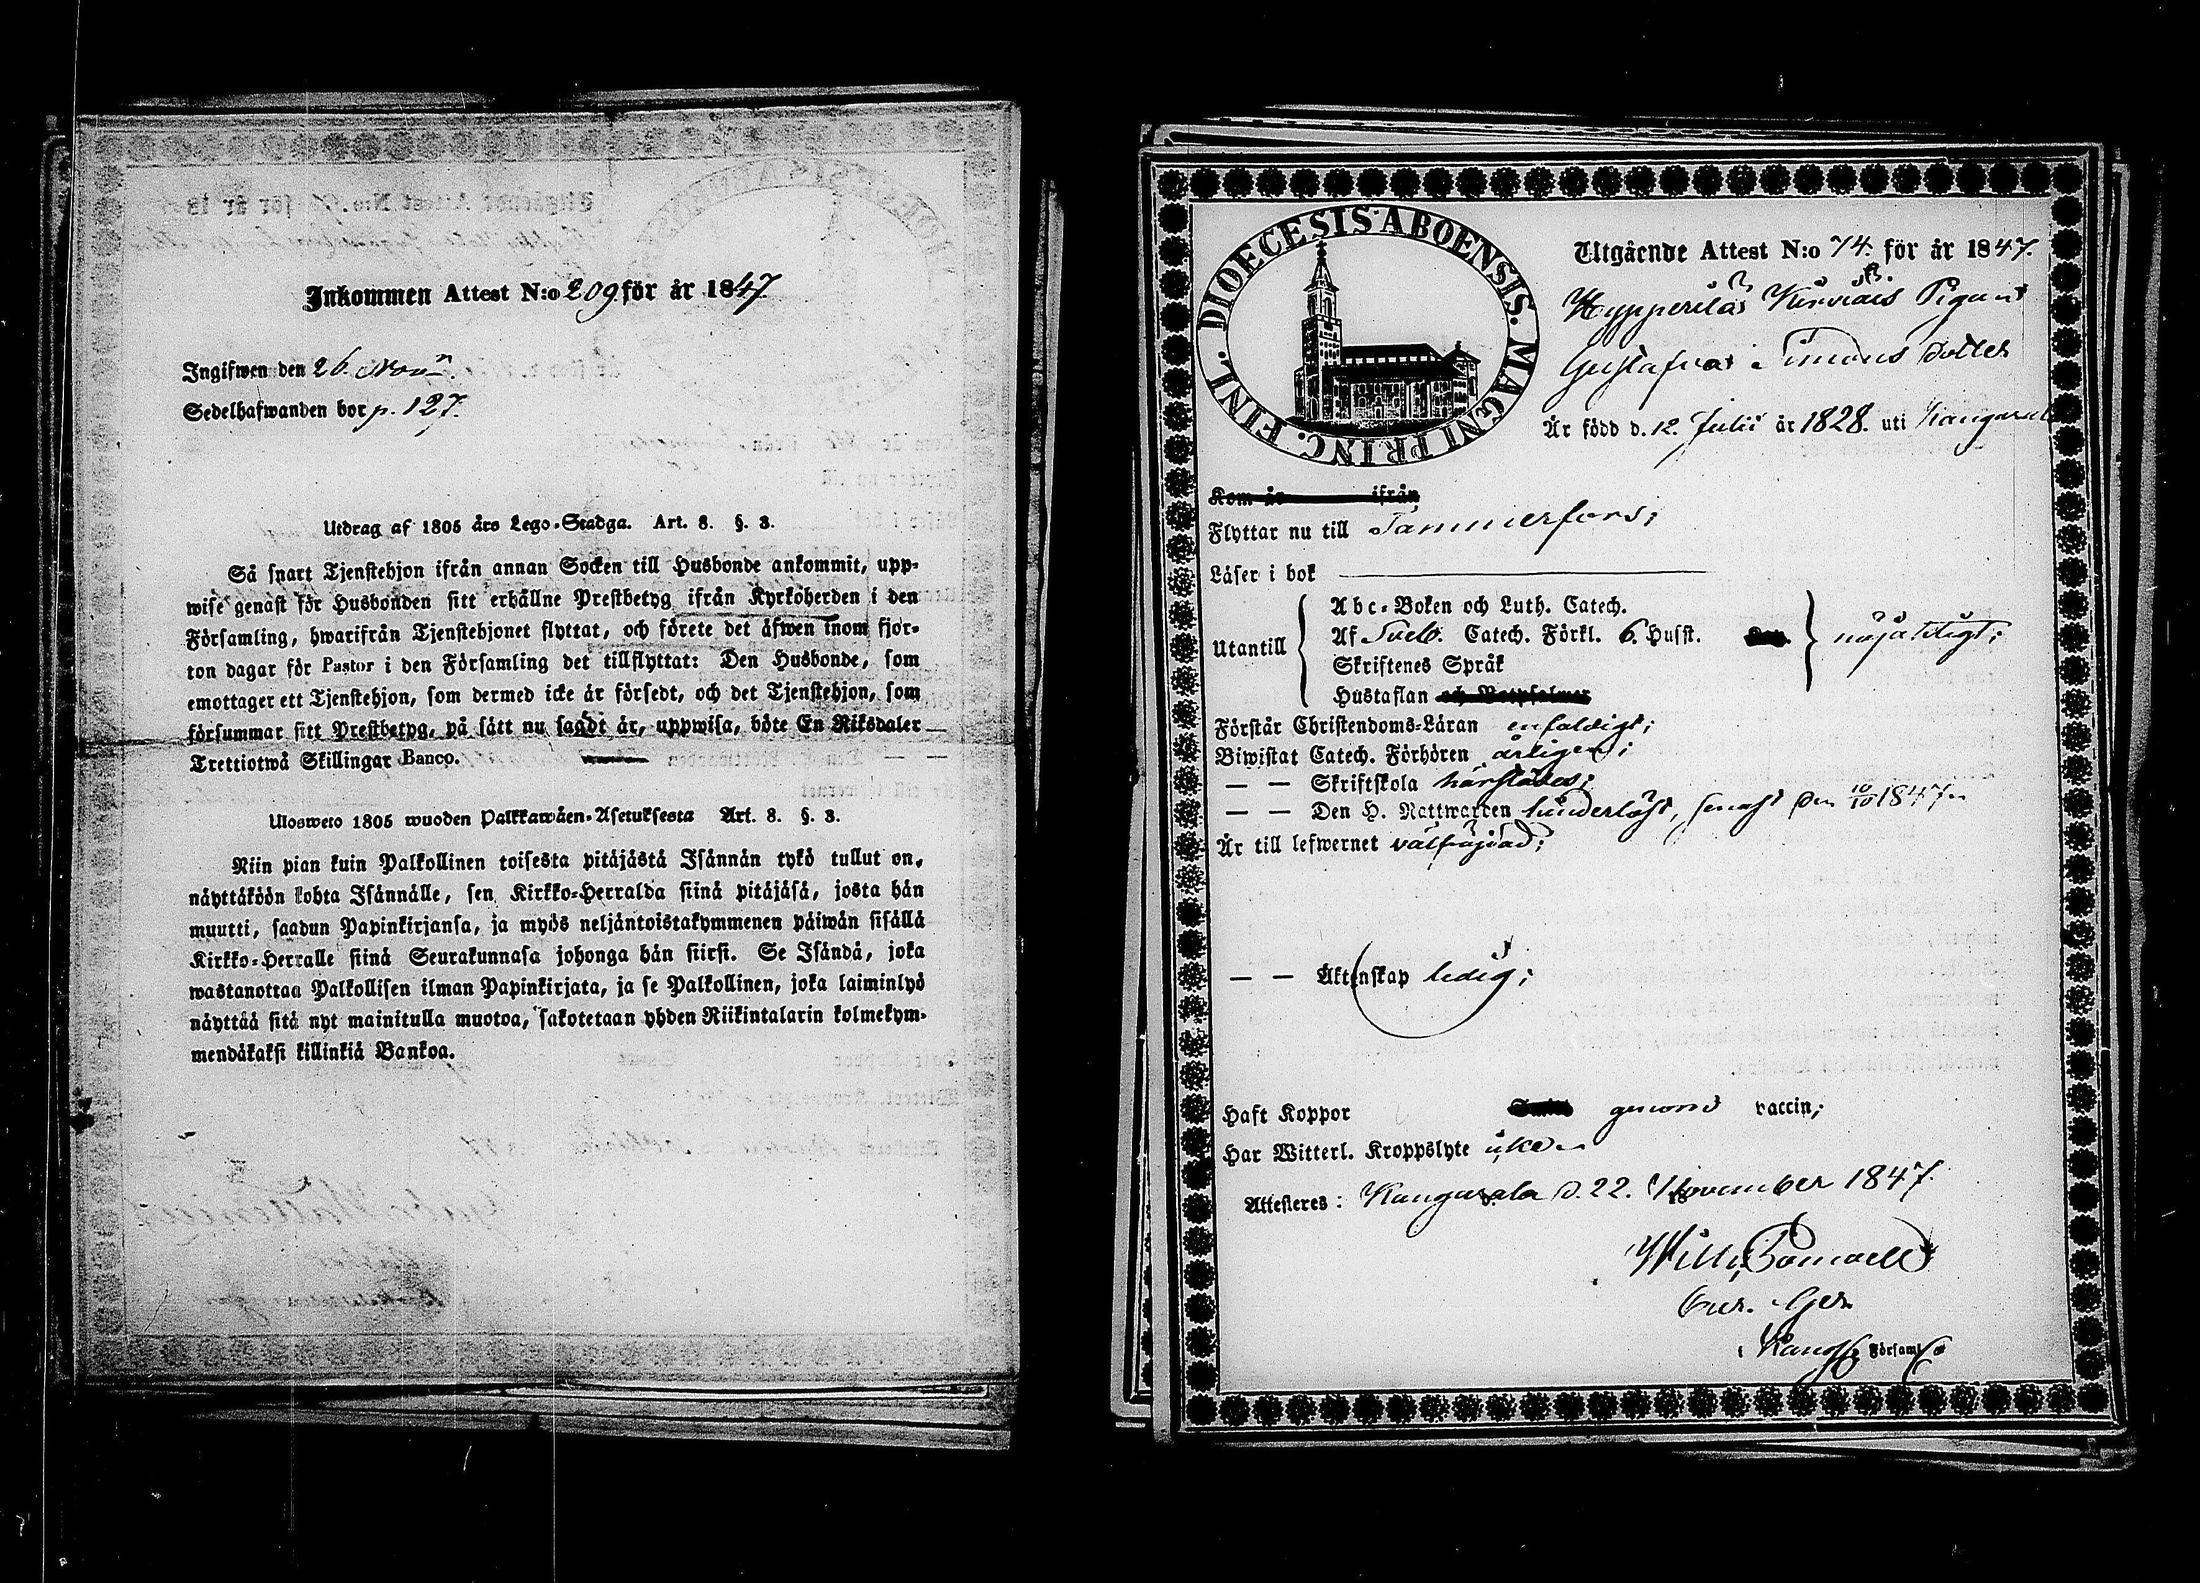 Inkommen Attest N:o 209 för år 1847.
Ingifwen den 26. Nov.
Sedelhafwanden bor p. 127.
Utdrag af 1805 års Lego-Stadga. Art. 8. §. 3.
Så snart Tjenstehjon ifrån annan Socken till Husbonde ankommit, upp-
wise genast för Husbonden sitt erhållne Prestbetyg ifrån Kyrkoherden i den
Församling, hwarifrån Tjenstehjonet flyttat, och förete det äfwen inom fjor-
ton dagar för Pastor i den Församling det tillflyttat: Den Husbonde, som
emottager ett Tjenstehjon, som dermed icke är försedt, och det Tjenstehjon, som
försummar sitt Prestbetyg, på sätt nu sagdt är, uppwisa, böte En Riksdaler
Trettiotwå Skillingar Banco.
Ulosweto 1805 wuoden Palkkawäen-Asetuksesta Art. 8. §. 3.
Niin pian kuin Palkollinen toisesta pitäjästä Isännän tykö tullut on,
näyttäköön kohta Isännälle, sen Kirkko-Herralda siinä pitäjäsä, josta hän
muutti, saadun Papinkirjansa, ja myös neljäntoistakymmenen päiwän sisällä
Kirkko-Herralle siinä Seurakunnasa johonga hän siirsi. Se Isändä, joka
wastanottaa Palkollisen ilman Papinkirjata, ja se Palkollinen, joka laiminlyö
näyttää sitä nyt mainitulla muotoa, sakotetaan yhden Riikintalarin kolmekym-
mendäkaksi killinkiä Bankoa.
DIOECESIS ABOENSIS. MAGNI PRINC. FINL.
Utgående Attest N:o 74. för år 1847.
Pigan
Gustafva Simons dotter
Är född d. 12. Julii år 1828. uti Kangasala
Kom år ifrån
Flyttar nu till Tammerfors;
Läser i bok
Utantill
Abc-Boken och Luth. Catech.
Af Sveb. Catech. Förkl. 6. Hufst. nöjaktigt;
Skriftenes Språk
Hustaflan och Botpsalmer
Förstår Christendoms-Läran enfaldigt;
Biwistat Catech. Förhören årligen;
— — Skriftskola härstädes;
— — Den H. Nattwarden hinderlöst, senast den 10/10 1847.
Är till lefwernet välfrägdad;
— — Äktenskap ledig;
Haft Koppor genom vaccin;
Har Witterl. Kroppslyte icke
Attesteres: Kangasala d. 22. November 1847.
i Kangs. Församl.